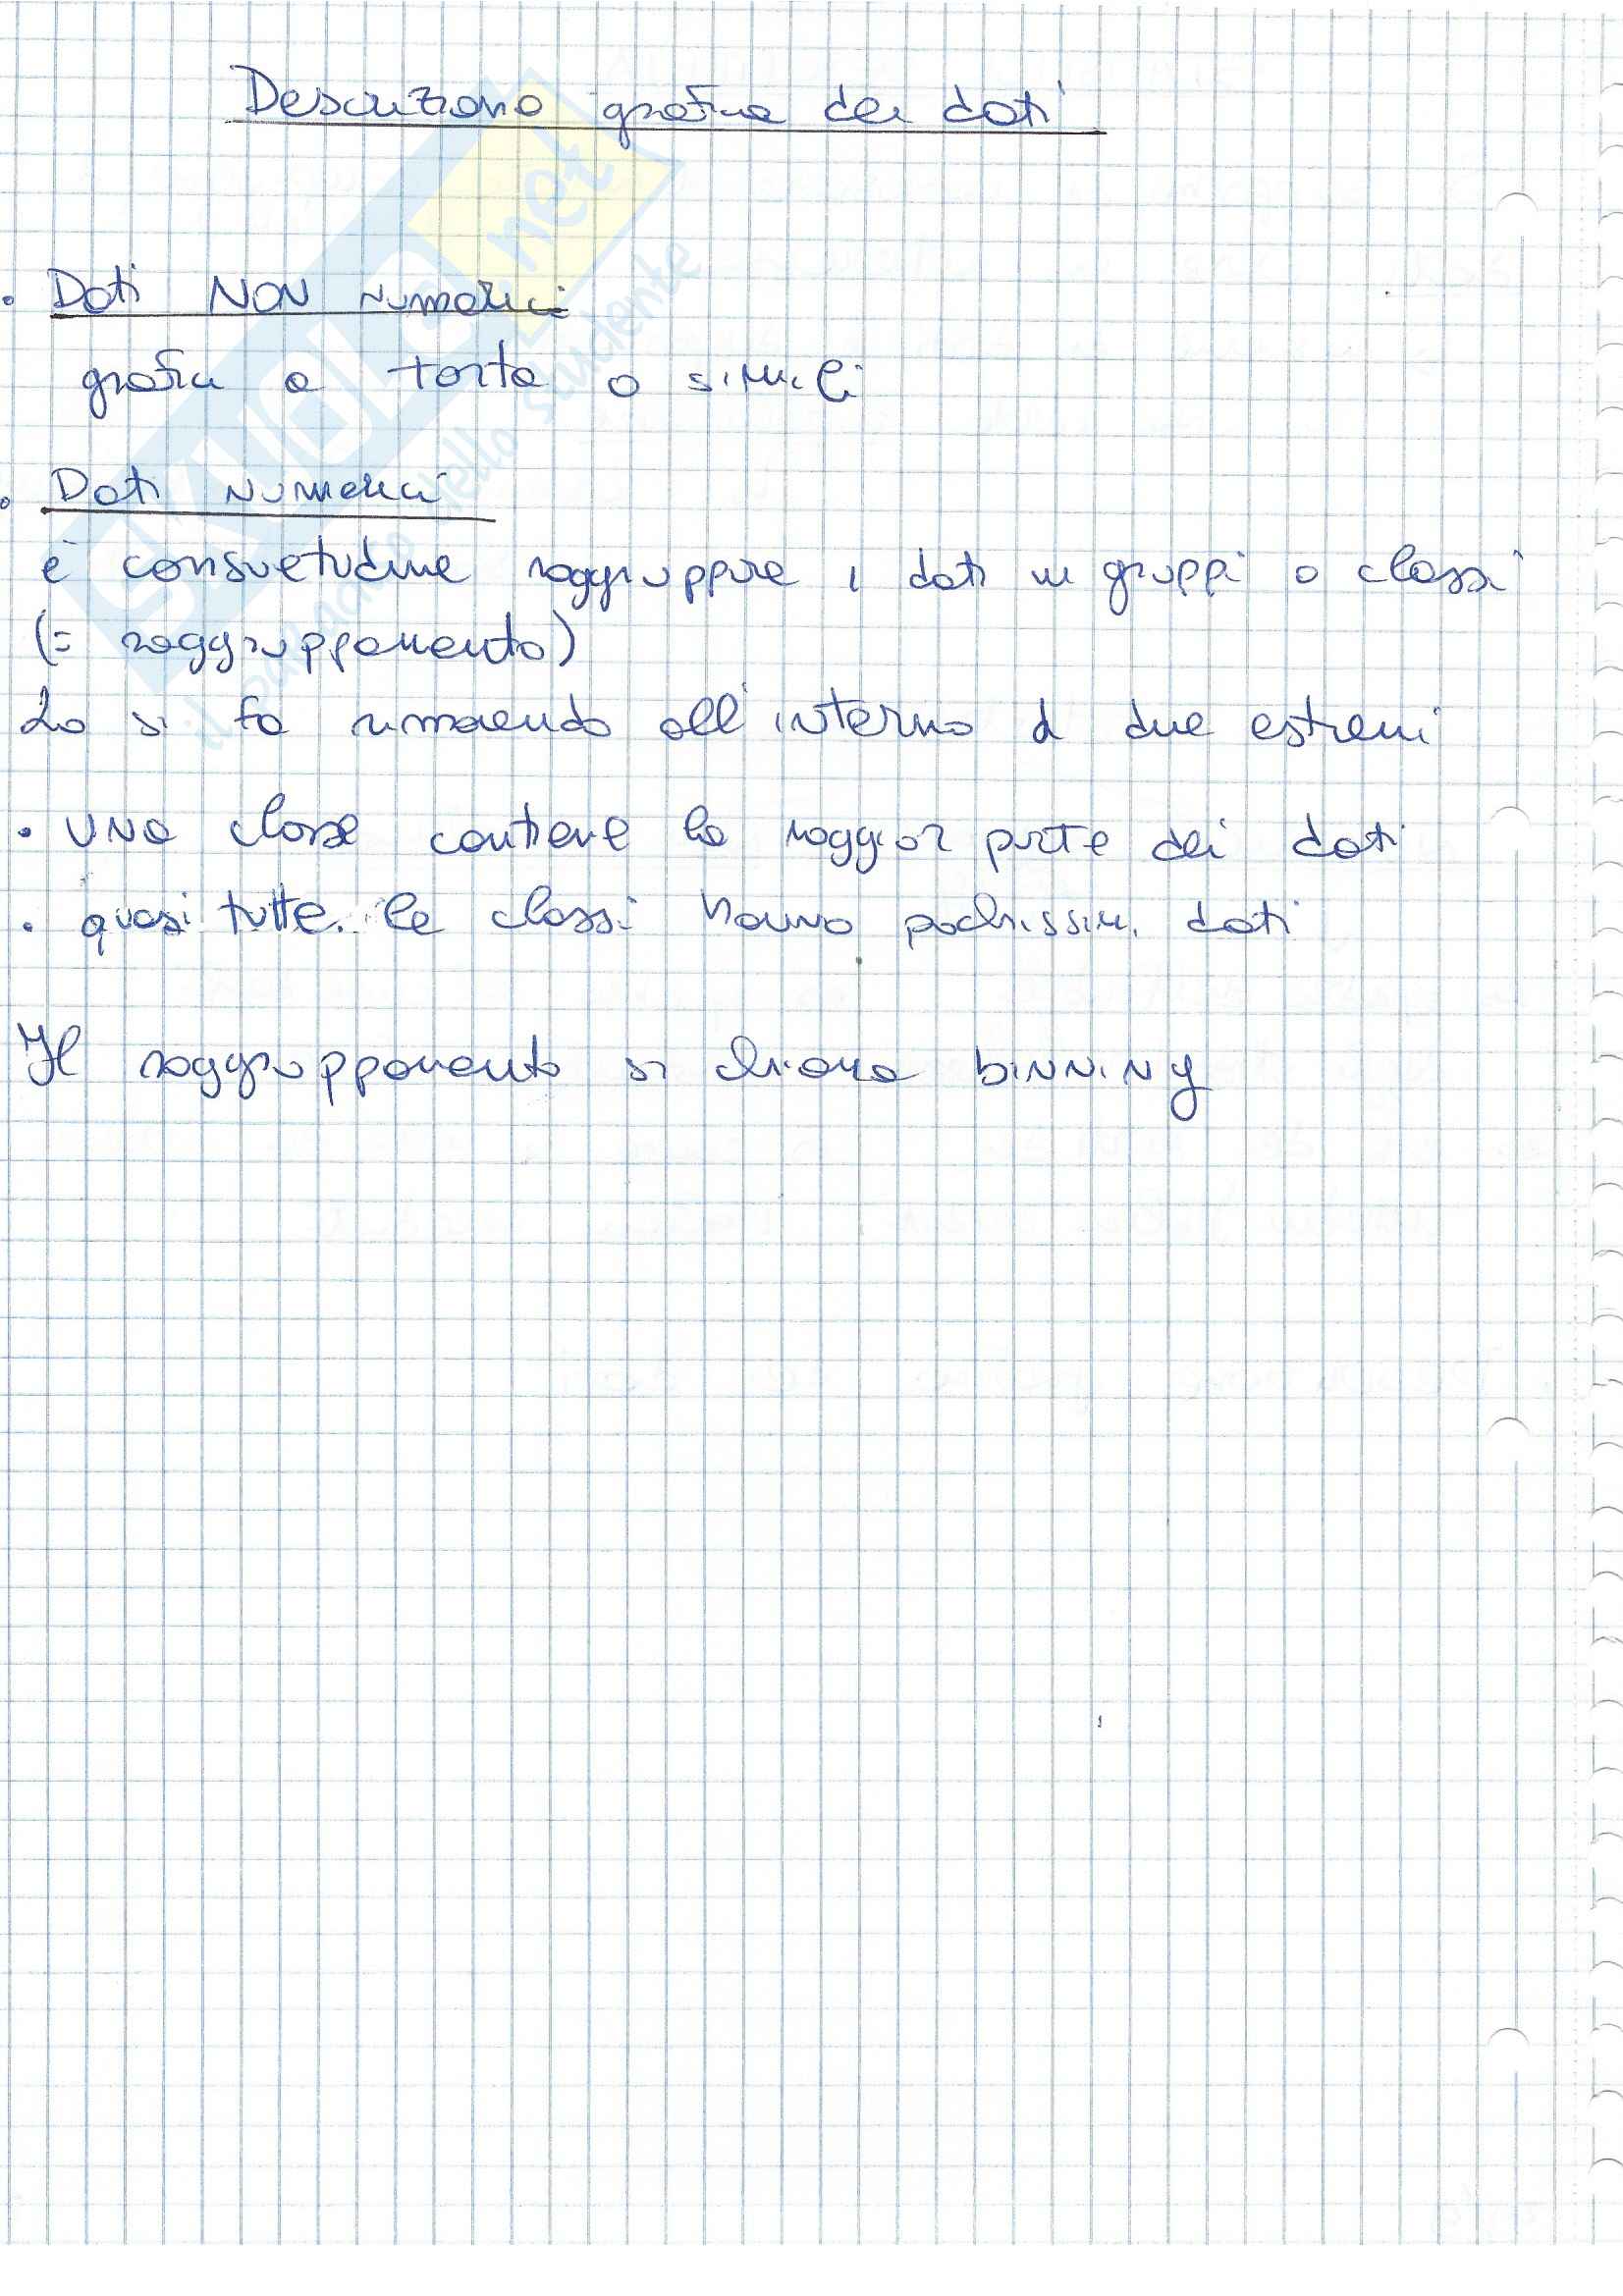 Descrizione grafica dei dati
• Dati NON numerici
grafici a torta o simili
• Dati numerici
è consuetudine raggruppare i dati in gruppi o classi
(= raggruppamento)
Lo si fa rimanendo all'interno di due estremi
• una classe contiene la maggior parte dei dati
• quasi tutte le classi hanno pochissimi dati
Il raggruppamento si chiama binning
SKUOLA.net
il paradiso dello studente